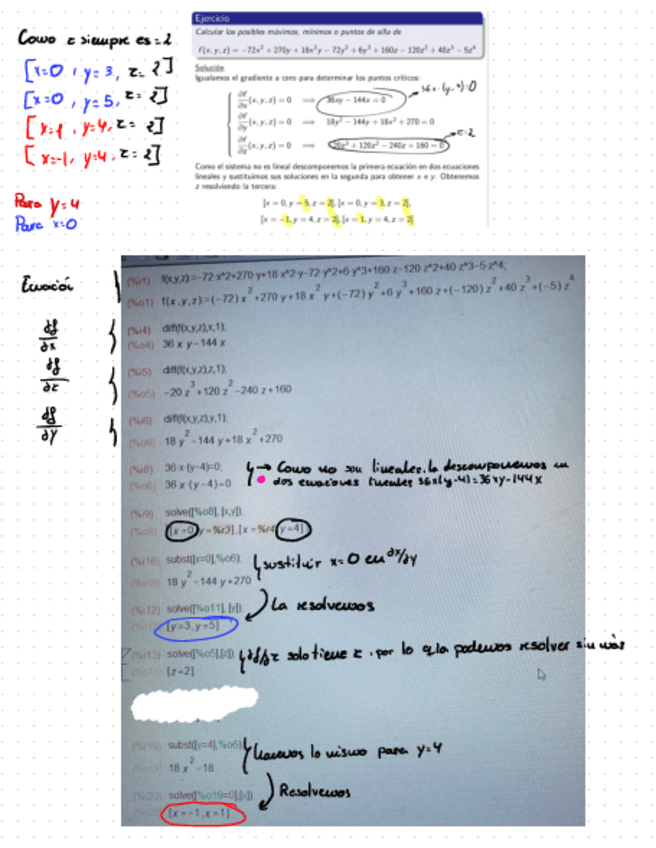 Como z siempre es = 2
[x=0, y=3, z=2]
[x=0, y=5, z=2]
[x=1, y=4, z=2]
[x=-1, y=4, z=2]
Para y=4
Para x=0
Ejercicio
Calcular los posibles máximos, mínimos o puntos de silla de
f(x, y, z) = −72x² + 270y + 18x²y − 72y² + 6y³ + 160z − 120z² + 40z³ − 5z⁴
Solución
Igualamos el gradiente a cero para determinar los puntos críticos:
∂f/∂x (x, y, z) = 0 ⟹ 36xy − 144x = 0
36x·(y-4)=0
∂f/∂y (x, y, z) = 0 ⟹ 18y² − 144y + 18x² + 270 = 0
z=2
∂f/∂z (x, y, z) = 0 ⟹ 20z³ + 120z² − 240z + 160 = 0
Como el sistema no es lineal descomponemos la primera ecuación en dos ecuaciones
lineales y sustituimos sus soluciones en la segunda para obtener x e y. Obtenemos
z resolviendo la tercera:
[x = 0, y = 5, z = 2], [x = 0, y = 3, z = 2],
[x = −1, y = 4, z = 2], [x = 1, y = 4, z = 2]
Ecuación
(%i1) f(x,y,z):=-72·x^2+270·y+18·x^2·y-72·y^2+6·y^3+160·z-120·z^2+40·z^3-5·z^4;
(%o1) f(x,y,z):=(-72) x² +270 y+18 x² y+(-72) y² +6 y³ +160 z+(-120) z² +40 z³ +(-5) z⁴
∂f/∂x
(%i4) diff(f(x,y,z),x,1);
(%o4) 36 x y-144 x
∂f/∂z
(%i5) diff(f(x,y,z),z,1);
(%o5) -20 z³ +120 z² -240 z+160
∂f/∂y
(%i6) diff(f(x,y,z),y,1);
(%o6) 18 y² -144 y+18 x² +270
(%i8) 36·x·(y-4)=0;
(%o8) 36 x (y-4)=0
→ Como no son lineales, la descomponemos en
dos ecuaciones lineales 36x(y-4)=36xy-144x
(%i9) solve([%o8], [x,y]);
(%o9) [[x=0,y=%r3],[x=%r4,y=4]]
(%i16) subst([x=0],%o6);
sustituir x=0 en ∂x/∂y
18 y² -144 y+270
(%i12) solve([%o11], [y]);
La resolvemos
[y=3,y=5]
(%i13) solve([%o5],[z]);
∂f/∂z solo tiene z, por lo q la podemos resolver sin más
[z=2]
(%i19) subst([y=4],%o6);
Hacemos lo mismo para y=4
18 x² -18
(%i20) solve([%o19=0],[x])
Resolvemos
[x=-1,x=1]